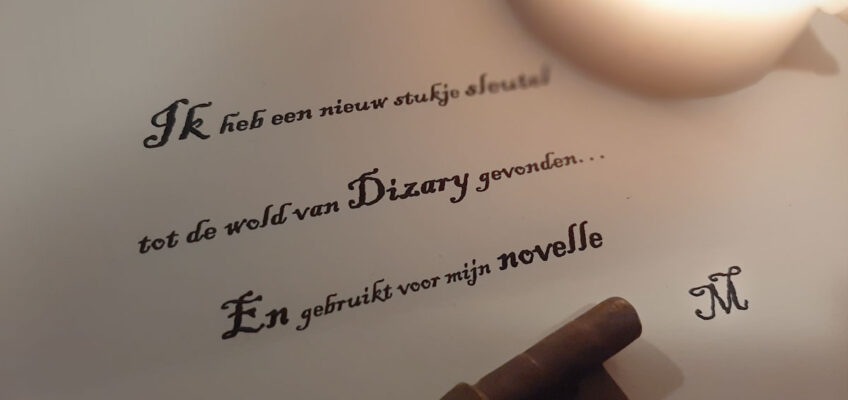 Ik heb een nieuw stukje sleutel
tot de wold van Dizary gevonden...
En gebruikt voor mijn novelle
M